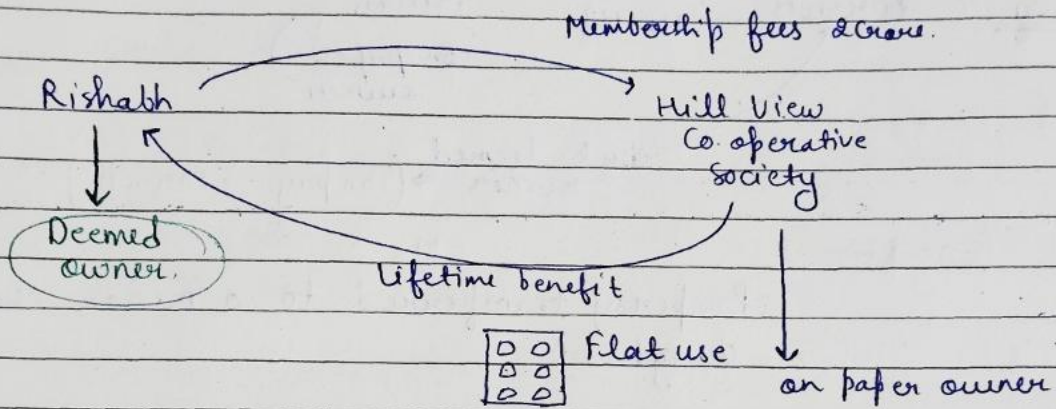 Membership fees 2 crore.
Rishabh
Hill View
Co. operative
Society
Deemed
owner.
Lifetime benefit
Flat use
on paper owner